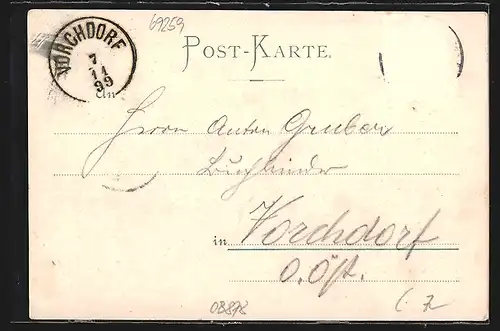 69259
VORCHDORF
7
11
99
POST-KARTE.
An
Herrn Anton Gruber
Buchbinder
in Vorchdorf
O. Öst.
03878